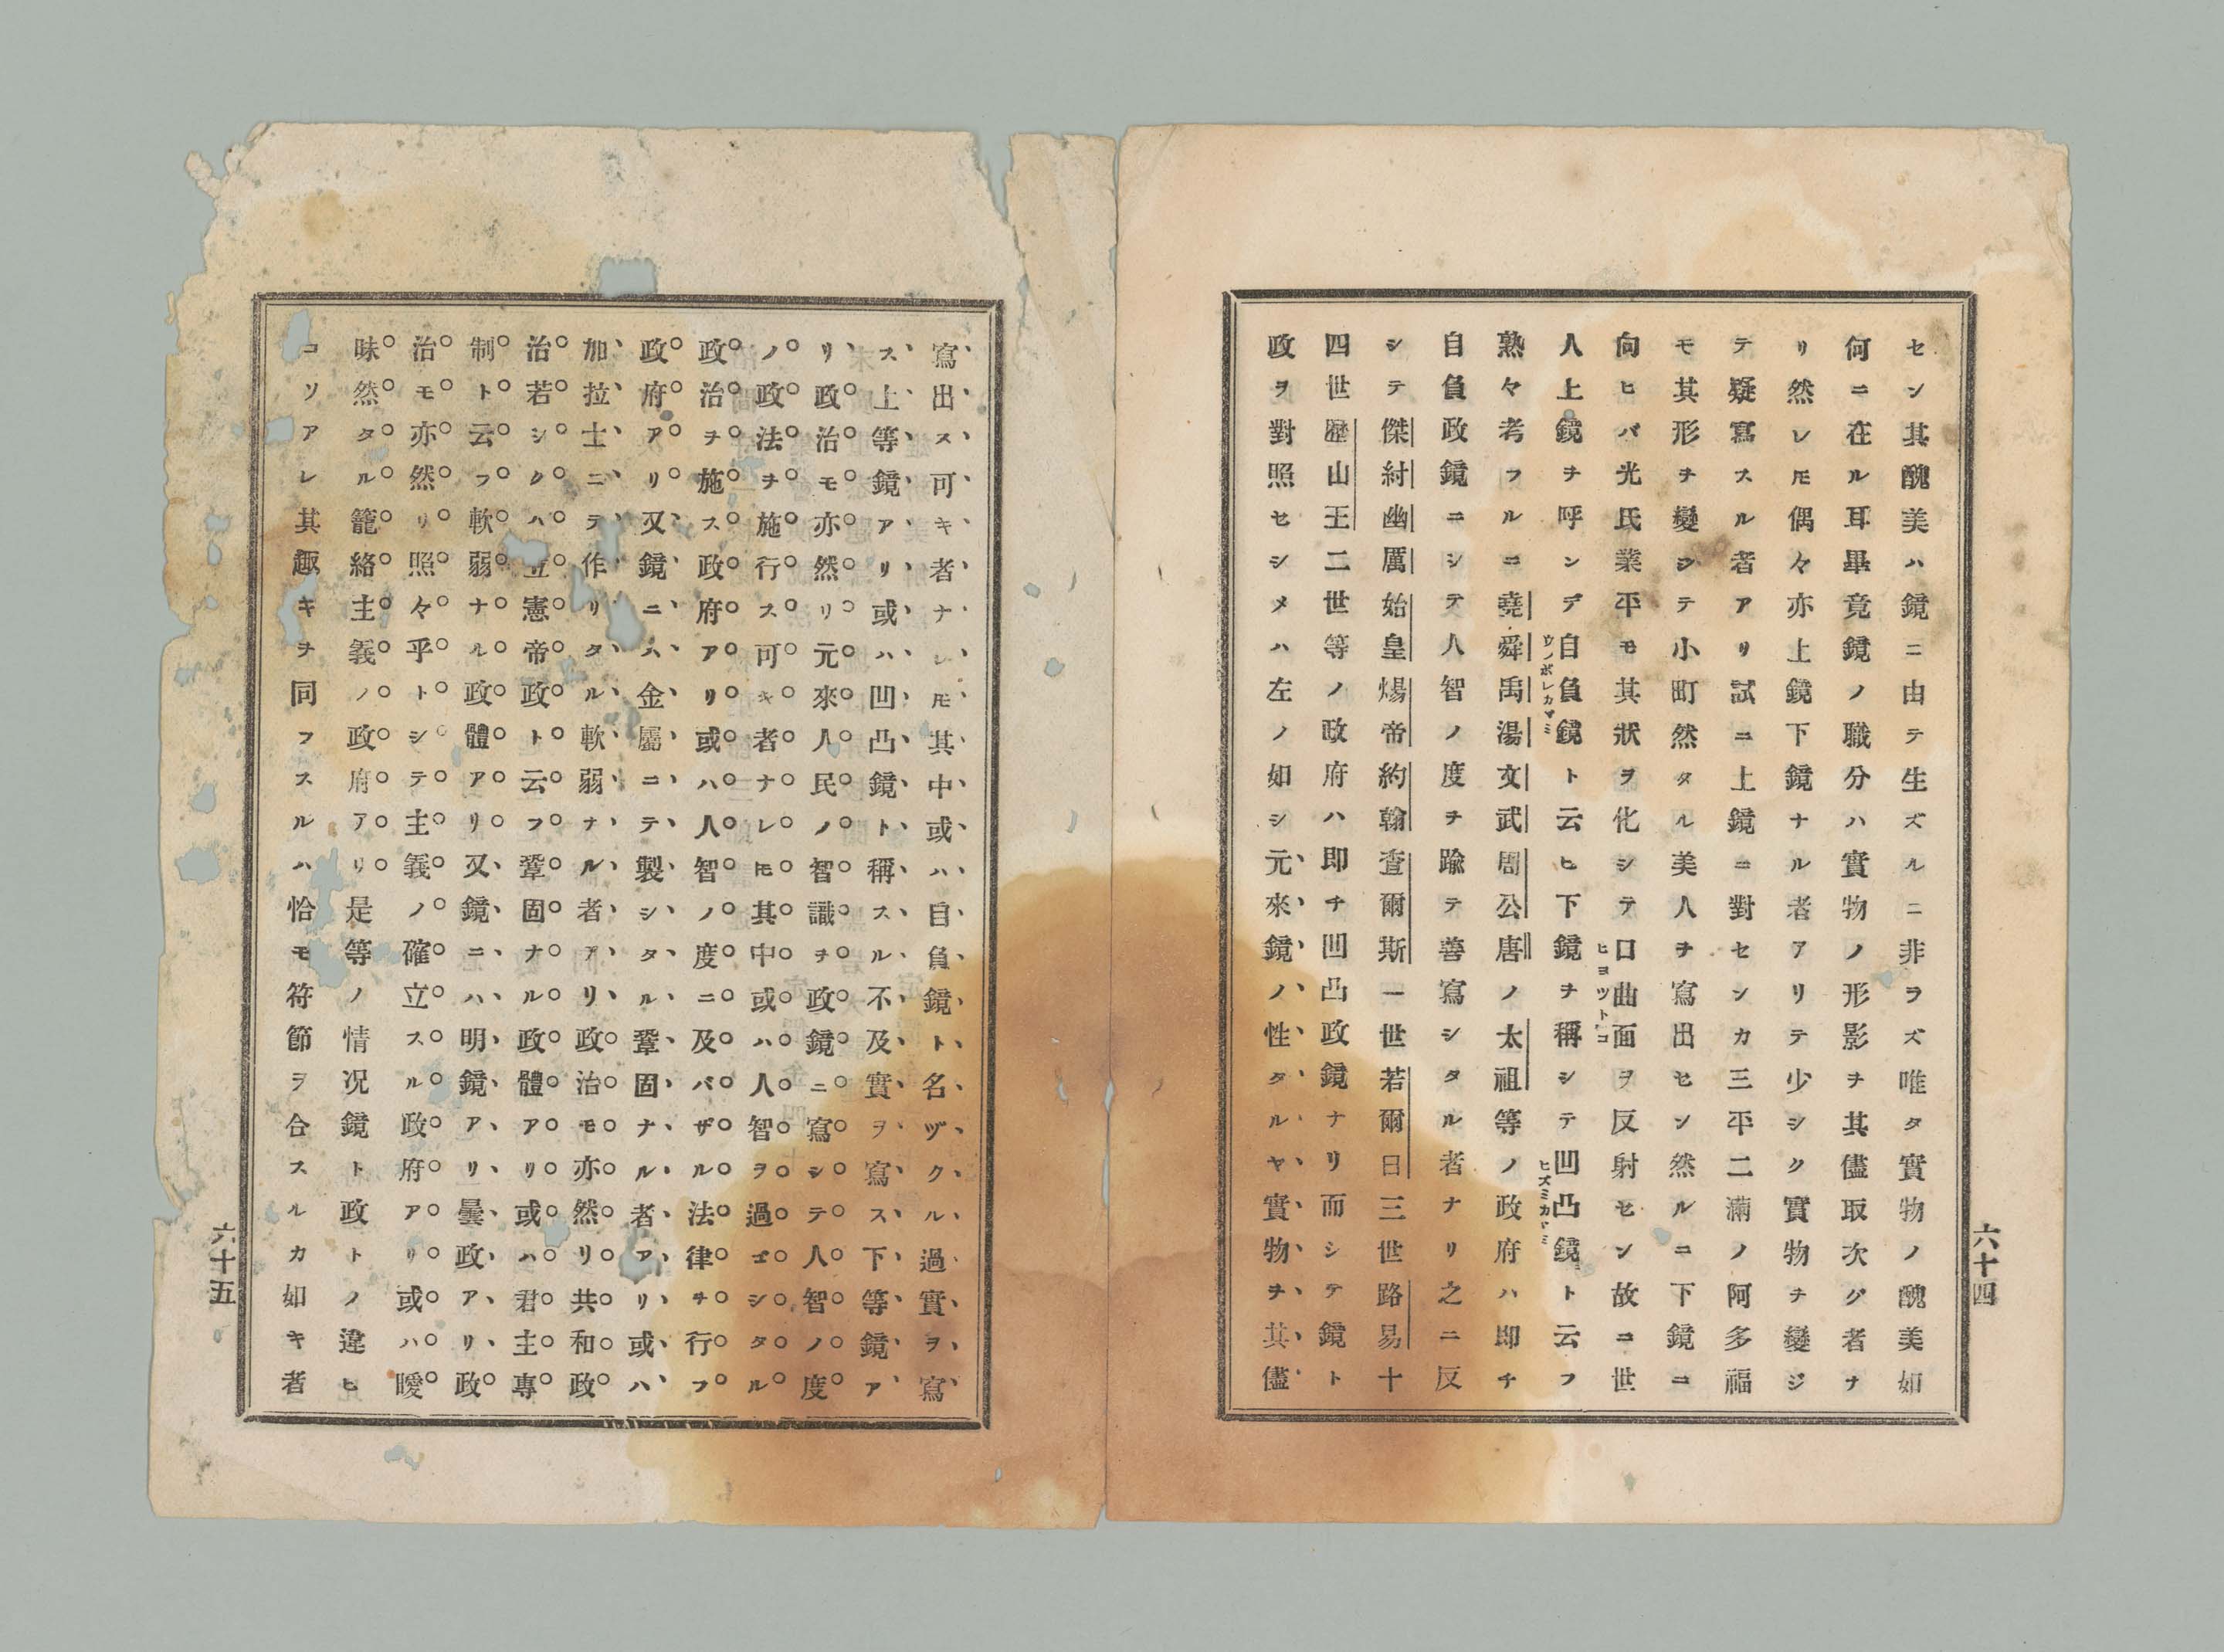 セン其醜美ハ鏡ニ由テ生ズルニ非ラズ唯タ實物ノ醜美如
何ニ在ル耳畢竟鏡ノ職分ハ實物ノ形影ヲ其儘取次グ者ナ
リ然レ𪜈偶々亦上鏡下鏡ナル者アリテ少シク實物ヲ變ジ
テ疑寫スル者アリ試ニ上鏡ニ對センカ三平二滿ノ阿多福
モ其形ヲ變シテ小町然タル美人ヲ寫出セン然ルニ下鏡ニ
向ヒバ光氏業平モ其狀ヲ化シテ口曲面ヲ反射セン故ニ世
ヒヨツトコ
人上鏡ヲ呼ンデ自負鏡ト云ヒ下鏡ヲ稱シテ凹凸鏡ト云フ
ウノボレカヾミ
ヒズミカヾミ
熟々考フルニ堯舜禹湯文武周公唐ノ太祖等ノ政府ハ即チ
自負政鏡ニシテ人智ノ度ヲ踰テ善寫シタル者ナリ之ニ反
シテ傑紂幽厲始皇煬帝約翰查爾斯一世若爾日三世路易十
四世歴山王二世等ノ政府ハ即チ凹凸政鏡ナリ而シテ鏡ト
政ヲ對照セシメハ左ノ如シ元來鏡ノ性タルヤ實物ヲ其儘
六十四
寫出ス可キ者ナレ𪜈其中或ハ自負鏡ト名ヅクル過實ヲ寫
ス上等鏡アリ或ハ凹凸鏡ト稱スル不及實ヲ寫ス下等鏡ア
リ政治モ亦然リ元來人民ノ智識ヲ政鏡ニ寫シテ人智ノ度
ノ政法ヲ施行ス可キ者ナレ𪜈其中或ハ人智ヲ過ゴシタル
政治ヲ施ス政府アリ或ハ人智ノ度ニ及バザル法律ヲ行フ
政府アリ又鏡ニハ金屬ニテ製シタル鞏固ナル者アリ或ハ
加拉士ニテ作リタル軟弱ナル者アリ政治モ亦然リ共和政
治若シクハ立憲帝政ト云フ鞏固ナル政體アリ或ハ君主專
制ト云フ軟弱ナル政體アリ又鏡ニハ明鏡アリ曇政アリ政
治モ亦然リ照々乎トシテ主義ノ確立スル政府アリ或ハ曖
昧然タル籠絡主義ノ政府アリ是等ノ情况鏡ト政トノ違ヒ
コソアレ其趣キヲ同フスルハ恰モ符節ヲ合スルカ如キ者
六十五